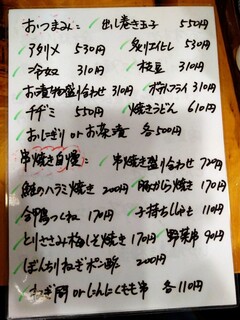 おつまみ: 出し巻き玉子 550円
アタリメ 530円 炙りエイヒレ 530円
冷奴 310円 枝豆 310円
お漬物盛り合わせ 310円 ポテトフライ 310円
チヂミ 550円 焼きうどん 610円
おにぎり or お茶漬 各500円
串焼き自慢: 串焼き盛り合わせ 720円
鮭ハラミ焼き 200円 豚ばら焼き 170円
合鴨つくね 170円 子持ちししゃも 110円
とりささみ梅しそ焼き 170円 野菜串 90円
ぼんちりねぎポン酢 200円
ねぎ間 or にんにくもも串 各110円